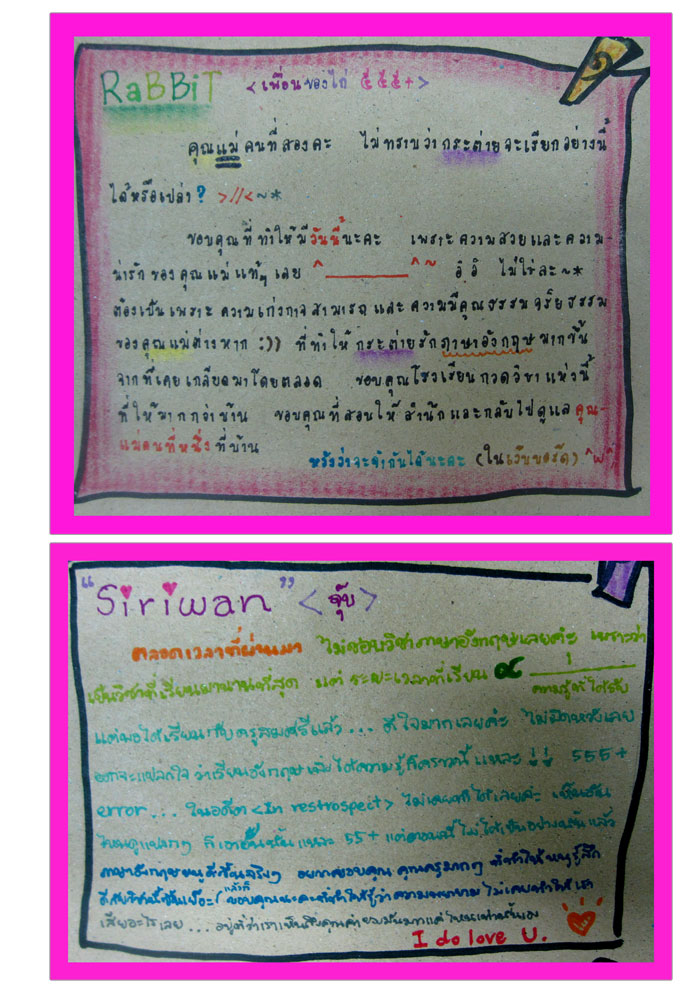 RaBBiT <เพื่อนของไก่ ๕๕๕+>
คุณแม่คนที่สองคะ ไม่ทราบว่ากระต่ายจะเรียกอย่างนี้
ได้หรือเปล่า? >//<~*
ขอบคุณที่ทำให้มีวันนี้นะคะ เพราะความสวยและความ-
น่ารักของคุณแม่แท้ๆเลย ^_______^~ อิอิ ไม่ใช่ละ~*
ต้องเป็นเพราะความเก่งกาจสามารถ และความมีคุณธรรมจริยธรรม
ของคุณแม่ต่างหาก :)) ที่ทำให้กระต่ายรักภาษาอังกฤษมากขึ้น
จากที่เคยเกลียดมาโดยตลอด ขอบคุณโรงเรียนกวดวิชาแห่งนี้
ที่ให้มากกว่าบ้าน ขอบคุณที่สอนให้สำนึกและกลับไปดูแลคุณ-
แม่คนที่หนึ่งที่บ้าน
หวังว่าจะจำกันได้นะคะ (ในเว็บบอร์ด)
"Siriwan" <จุ๊บ>
ตลอดเวลาที่ผ่านมา ไม่ชอบวิชาภาษาอังกฤษเลยค่ะ เพราะว่า
เป็นวิชาที่เรียนมานานที่สุด แต่ ระยะเวลาที่เรียน ∝ 1
ความรู้ที่ได้รับ
แต่พอได้เรียนกับครูสมศรีแล้ว... ดีใจมากเลยค่ะ ไม่ผิดหวังเลย
ออกจะแปลกใจ ว่าเรียนอังกฤษแล้วได้ความรู้ก็คราวนี้แหละ !! 555+
error... ในอดีต <In restrospect> ไม่เคยทำได้เลยค่ะ
ไหนดูแปลกๆ ก็เอาอันนั้นแหละ 55+ แต่ตอนนี้ ไม่ได้เป็นอย่างนั้นแล้ว
ภาษาอังกฤษหนูดีขึ้นจริงๆ อยากขอบคุณ คุณครูมากๆ ที่ทำให้หนูรู้สึก
ขอบคุณนะคะที่ทำให้รู้ว่าความพยายาม ไม่เคยทำให้เรา
เสียอะไรเลย...
I do love U.